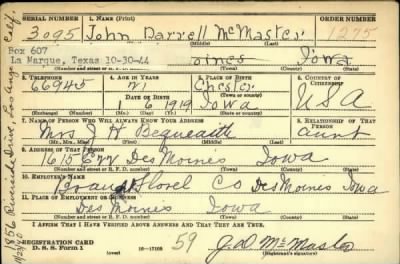 SERIAL NUMBER 1. NAME (Print) ORDER NUMBER
3095 John Darrell McMaster 1275
(First) (Middle) (Last)
Box 607
La Marque, Texas 10-30-44 oines Iowa
(Number and street or R. F. D. number) (Town) (County) (State)
3. TELEPHONE 4. AGE IN YEARS 5. PLACE OF BIRTH 6. COUNTRY OF CITIZENSHIP
66945 21 Chester
DATE OF BIRTH (Town or county)
1 6 1919 Iowa USA
(Mo.) (Day) (Yr.) (State or country)
7. NAME OF PERSON WHO WILL ALWAYS KNOW YOUR ADDRESS 8. RELATIONSHIP OF THAT PERSON
Mrs J H Bequeaith aunt
(Mr., Mrs., Miss) (First) (Middle) (Last)
9. ADDRESS OF THAT PERSON
1615 Des Moines Iowa
(Number and street or R. F. D. number) (Town) (County) (State)
10. EMPLOYER'S NAME
Shovel Co Des Moines Iowa
11. PLACE OF EMPLOYMENT OR BUSINESS
Des Moines Iowa
(Number and street or R. F. D. number) (Town) (County) (State)
I AFFIRM THAT I HAVE VERIFIED ABOVE ANSWERS AND THAT THEY ARE TRUE.
REGISTRATION CARD
D. S. S. Form 1 (over) 59 J. D. McMaster
(Registrant's signature)
1856 Riverside Drive, Los Angeles Calif.